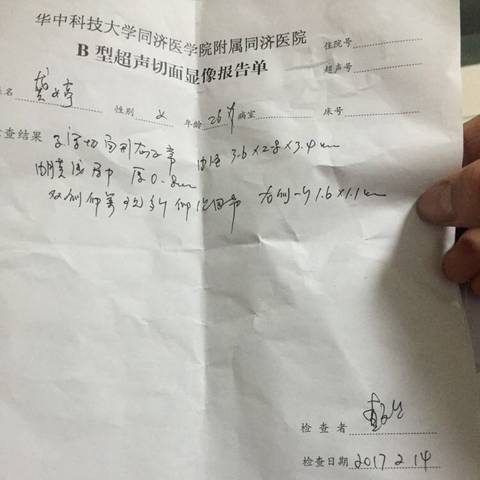 华中科技大学同济医学院附属同济医院
B 型超声切面显像报告单
住院号
超声号
名 性别 女 年龄 26岁 病室 床号
检查结果 子宫切面形态正常 内径 3.6×2.8×3.4cm
内膜居中 厚0.8cm
双侧卵巢 右侧一约1.6×1.1cm
检查者
检查日期 2017 2 14